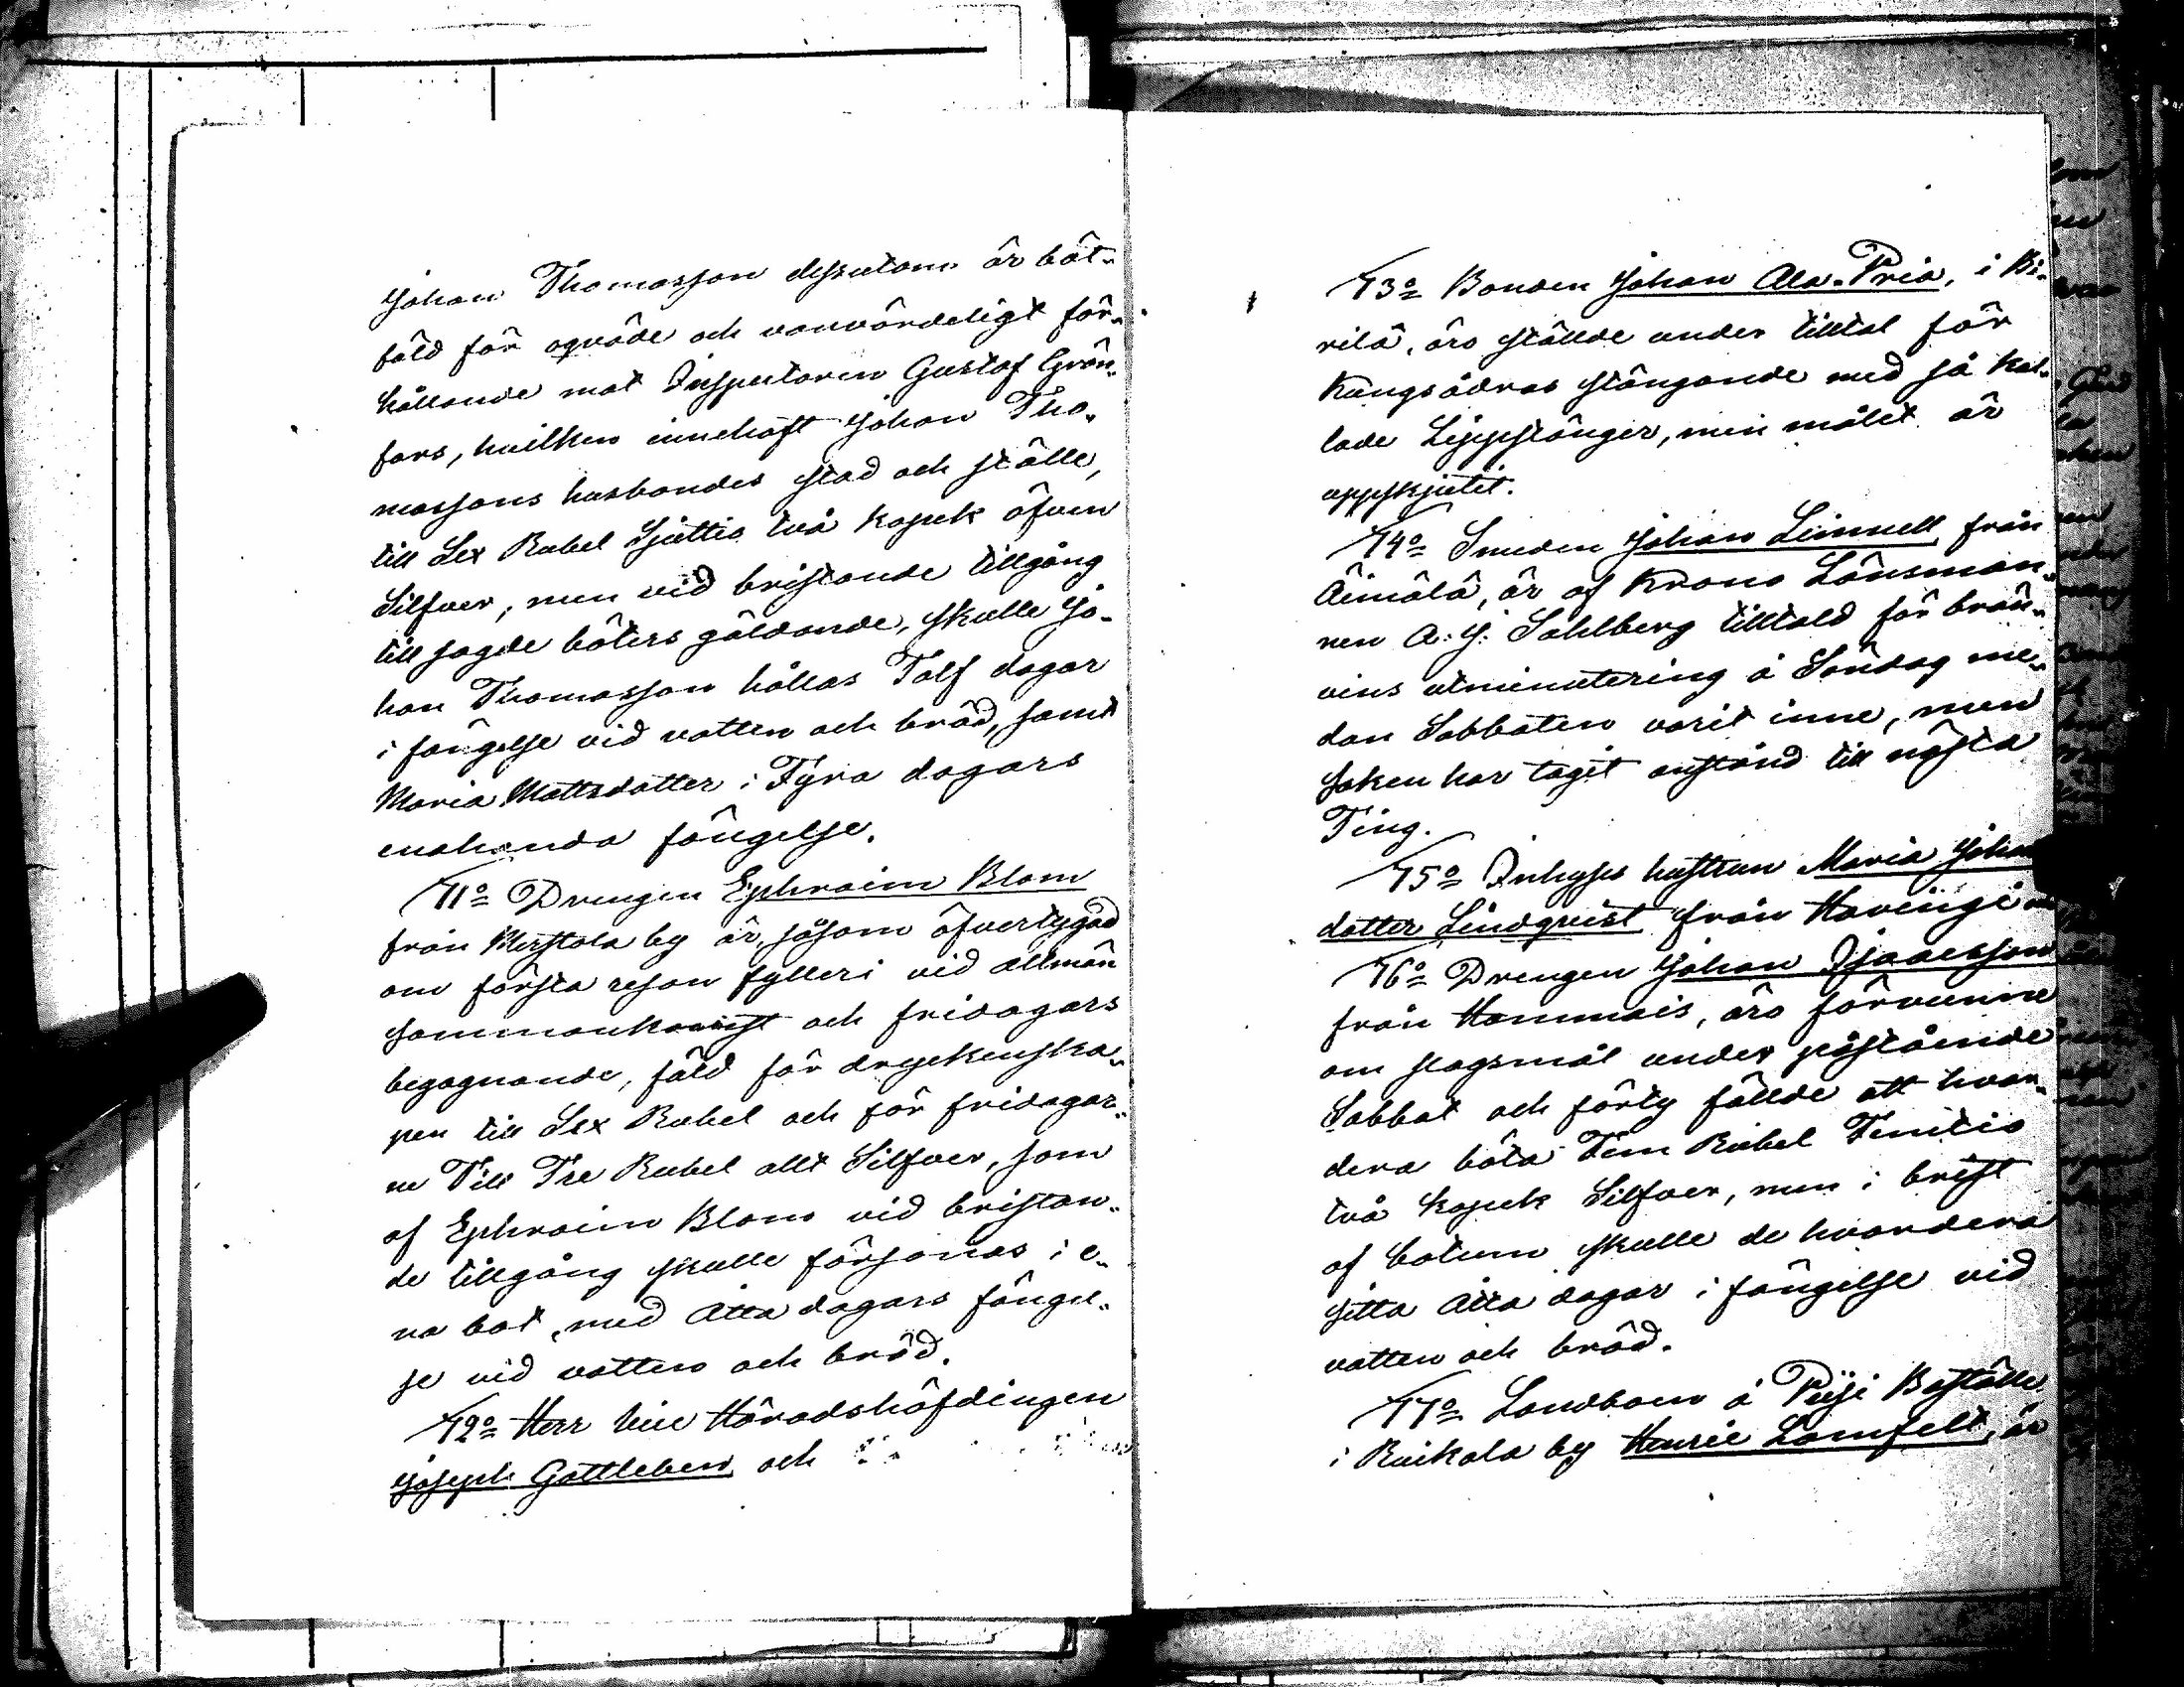 Johan Thomasson dessutom är böt-
fäld för oqväde och vanvördeligt för-
hållande mot Inspectoren Gustaf Grön-
fors, hvilken innehaft Johan Tho-
massons husbondes stad och ställe,
till Sex Rubel Sjuttio två kopek äfven
Silfver, men vid bristande tillgång
till sagde böters gäldande, skulle Jo-
han Thomasson hållas Tolf dagar
i fängelse vid vatten och bröd, samt
Maria Mattsdotter i Fyra dagars
enahanda fängelse.
11o Drengen Ephraim Blom
från by är, såsom öfvertygad
om första resan fylleri vid allmän
sammankomst och fridagars
begagnande, fäld för dryckenska-
pen till Sex Rubel och för fridagar-
ne Till Tre Rubel allt Silfver, som
af Ephraim Blom vid bristan-
de tillgång skulle försonas i e-
na bot, med Åtta dagars fängel-
se vid vatten och bröd.
12o Herr Vice Häradshöfdingen
Joseph Gottleben och
13o Bonden Johan Ala-Pria, i Vi-
rilä, äro stälde under tilltal för
Kungsådras stängande med så kal-
lade Lippstänger, men målet är
uppskjutit.
14o Smeden Johan Limnell från
Äimälä, är af Krono Länsman-
nen A. J. Sahlberg tilltald för brän-
vins utminutering å Söndag me-
dan Sabbaten varit inne, men
saken har tagit anstånd till nästa
Ting.
15o Inhyses hustrun Maria Johans
dotter Lindqvist från
16o Drengen Johan Isaacsson
från Hammais, äro förvunne
om slagsmål under påstående
Sabbat och förty fällde att hvar-
dera böta Fem Rubel Femtio
två kopek Silfver, men i brist
af botum skulle de hvardera
sitta Åtta dagar i fängelse vid
vatten och bröd.
17o Landboen å Boställe
i Ruikala by Henric Lomfelt, är